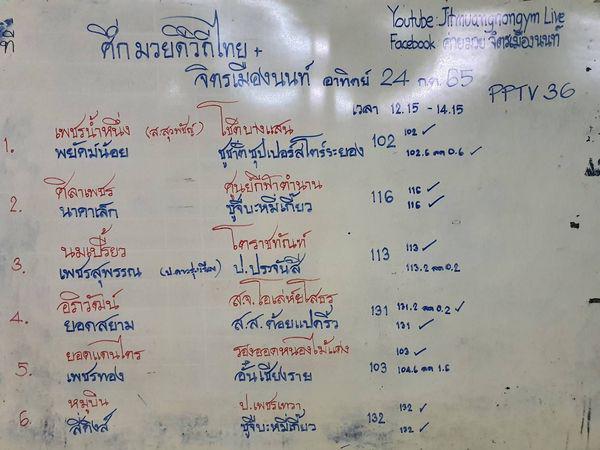 Youtube: Jitmuangnongym Live
Facebook ค่ายมวย จิตรเมืองนนท์
ที่
ศึก มวยดีวิถีไทย +
จิตรเมืองนนท์ อาทิตย์ 24 กค 65
PPTV 36
เวลา 12.15 - 14.15
1. เพชรน้ำหนึ่ง โชติบางแสน 102 102 ✓
พยัคฆ์น้อย ชูชาติซุปเปอร์สไตร์ระยอง 102.6 ลด 0.6 ✓
2. ศิลาเพชร ศูนย์กีฬาตำนาน 116 116 ✓
นาคาเล็ก ชูจีบะหมี่เกี๊ยว 116 ✓
3. นมเปรี้ยว โตราชทัณฑ์ 113 113 ✓
เพชรสุพรรณ ป.ประจันสี 113.2 ลด 0.2
4. อิราวัฒน์ 131 131.2 ลด 0.2 ✓
ยอดสยาม ส.ส.ต้อยแปดริ้ว 131 ✓
5. ยอดแดนไตร รองออดหนองไม้แดง 103 103 ✓
เพชรทอง อั๋นเชียงราย 104.6 ลด 1.6
6. หมุบิน ป.เพชรเทวา 132 132 ✓
สิคิงส์ ชูจีบะหมี่เกี๊ยว 132 ✓